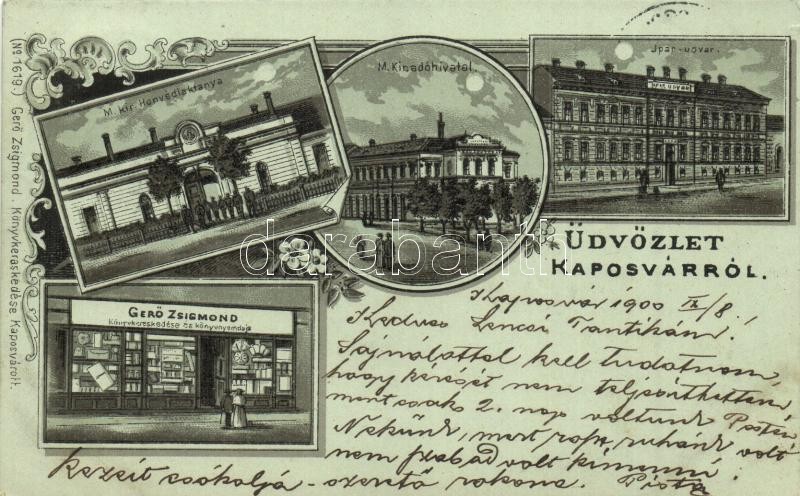 (No 1619.) Gerő Zsigmond, Könyvkereskedése Kaposvárott.
M. kir. Honvédlaktanya
M. Kiradóhivatal.
Ipar-udvar.
IPAR UDVAR
darabanth
ÜDVÖZLET
KAPOSVÁRRÓL.
GERŐ ZSIGMOND
Könyvkereskedése és könyvnyomdája
Kaposvár 1900 IX/8!
Kedves Lencsi Tantikám!
Sajnálattal kell tudatnom,
hogy kérését nem teljesíthettem,
mert csak 2. nap voltunk Pesten
Nekünk, mert ruhánk volt
nem szabad volt kimenni.
kezeit csókolja szerető rokona. Pista